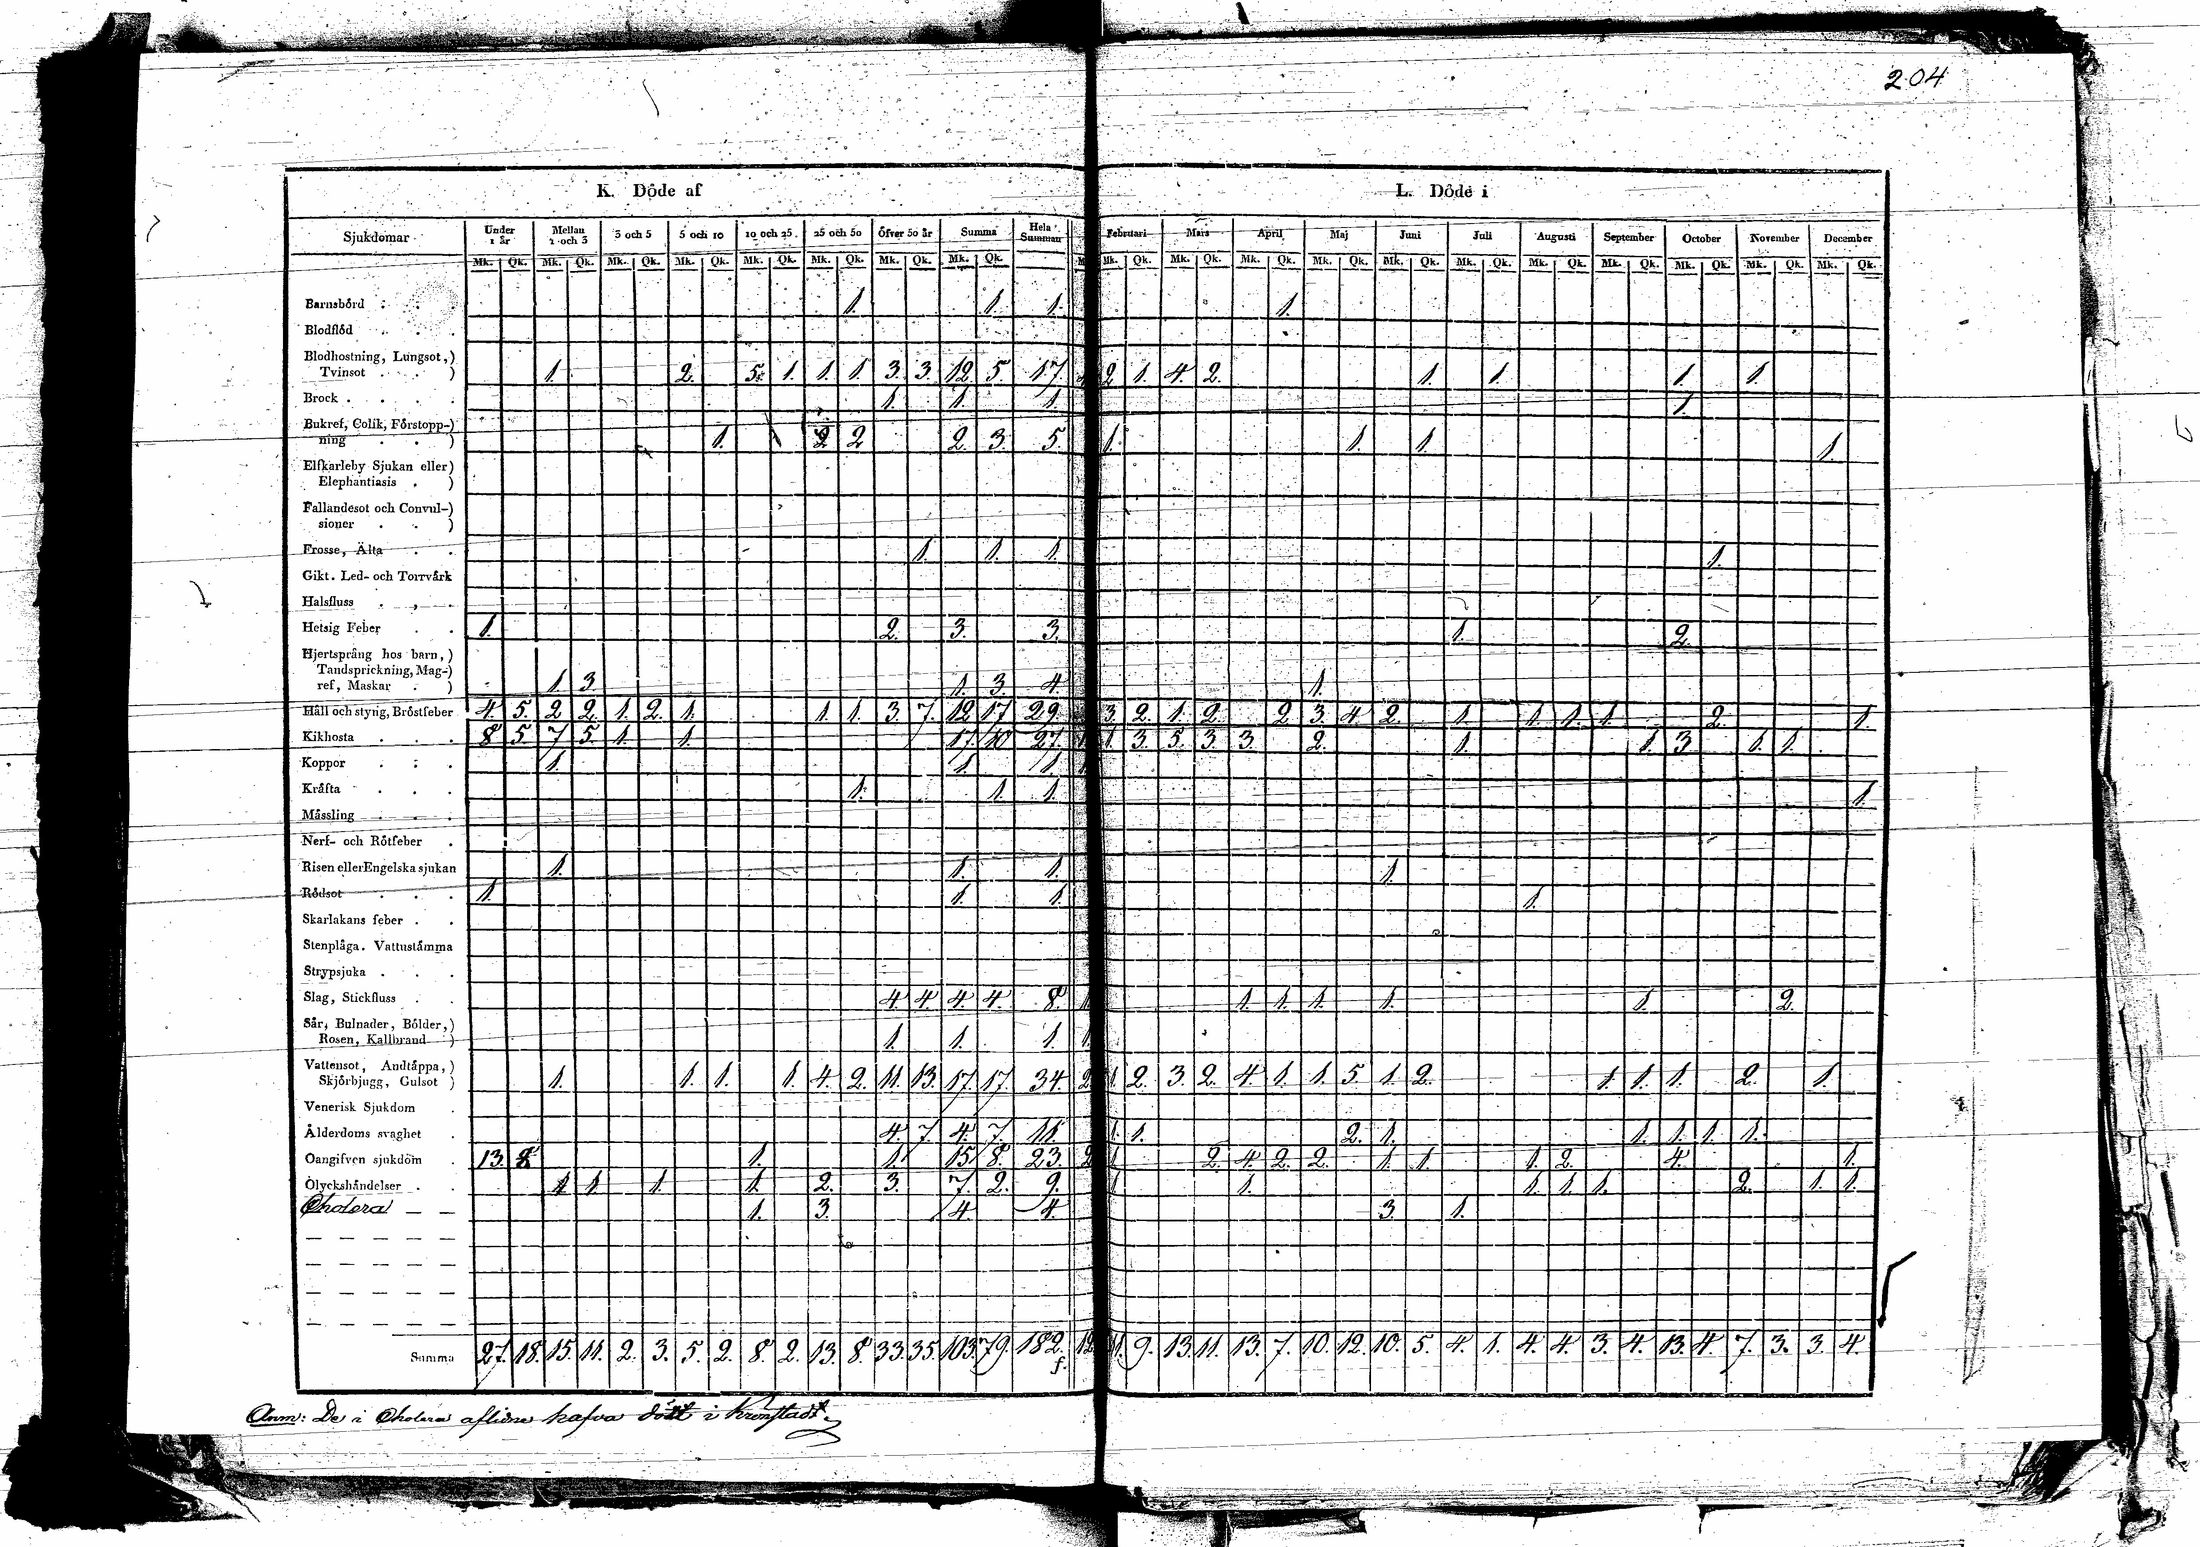 204
K. Döde af
L. Döde i
Sjukdomar Under 1 år Mellan 1 och 3 3 och 5 5 och 10 10 och 25. 25 och 50 öfver 50 år Summa Hela Summan Februari Mars April Maj Juni Juli Augusti September October November December
Mk. Qk. Mk. Qk. Mk. Qk. Mk. Qk. Mk. Qk. Mk. Qk. Mk. Qk. Mk. Qk. Mk. Qk. Mk. Qk. Mk. Qk. Mk. Qk. Mk. Qk. Mk. Qk. Mk. Qk. Mk. Qk. Mk. Qk. Mk. Qk. Mk. Qk.
Barnsbörd . . . 1. 1. 1. 1.
Blodflöd . . .
Blodhostning, Lungsot,)
Tvinsot . . . ) 1. 2. 5. 1. 1. 1. 3. 3. 12. 5. 17. 2 1. 4. 2. 1. 1. 1. 1.
Brock . . . . 1. 1. 1. 1.
Bukref, Colik, Förstopp-)
ning . . ) 1. 2 2 2. 3. 5. 1. 1. 1. 1.
Elfkarleby Sjukan eller)
Elephantiasis . )
Fallandesot och Convul-)
sioner . . )
Frosse, Älta . . 1. 1. 1. 1.
Gikt. Led- och Torrvärk
Halsfluss . . .
Hetsig Feber . . 1. 2. 3. 3. 1. 2.
Hjertsprång hos barn, )
Tandsprickning, Mag-)
ref, Maskar . ) 1. 3. 1. 3. 4. 1.
Håll och styng, Bröstfeber 4. 5. 2. 2. 1. 2. 1. 1. 1. 3. 7. 12 17 29. 3. 2. 1. 2. 2 3. 4 2. 1. 1. 1. 1. 2. 1.
Kikhosta . . . 8 5. 7. 5. 1. 1. 17. 10 27. 1. 3. 5. 3. 3. 2. 1. 1. 3. 1. 1.
Koppor . . . 1. 1. 1. 1
Kräfta . . . 1. 1. 1. 1.
Mässling . . .
Nerf- och Rötfeber .
Risen eller Engelska sjukan 1. 1. 1. 1.
Rödsot . . . 1. 1. 1. 1.
Skarlakans feber . .
Stenplåga. Vattustämma
Strypsjuka . . .
Slag, Stickfluss . . 4. 4. 4. 4. 8. 1 1. 1. 1. 1. 1. 2.
Sår, Bulnader, Bölder,)
Rosen, Kallbrand ) 1. 1. 1. 1.
Vattensot, Andtäppa, )
Skjörbjugg, Gulsot ) 1. 1. 1. 1. 4. 2. 11. 13. 17. 17. 34. 2 1. 2. 3. 2. 4. 1. 1. 5. 1. 2. 1. 1. 1. 2. 1.
Venerisk Sjukdom .
Ålderdoms svaghet . 4. 7. 4. 7. 11. 1. 1. 2. 1. 1. 1. 1. 1.
Oangifven sjukdom . 13. 8. 1. 1. 15. 8. 23. 2 1. 2. 4. 2. 2. 1. 1. 1. 2. 4. 1.
Olyckshändelser . . 1. 1. 1. 1. 2. 3. 7. 2. 9. 1 1. 1. 1. 1. 2. 1. 1.
Cholera — — 1. 3. 4. 4. 3. 1.
Summa 27. 18. 15. 11. 2. 3. 5. 2. 8. 2. 13. 8. 33. 35. 103. 79. 182. 12 11. 9. 13. 11. 13. 7. 10. 12. 10. 5. 4. 1. 4. 4. 3. 4. 13. 4. 7. 3. 3. 4.
Anm: De i Cholera aflidne hafva dödt i Kronstadt.